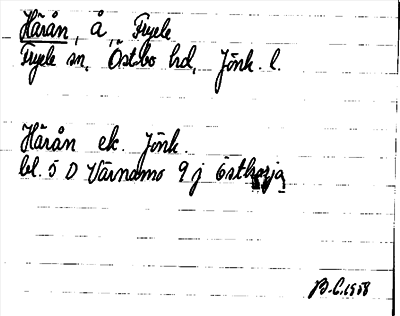 Härån, å, Fryele
Fryele sn, Östbo hd, Jönk. l.
Härån ek. Jönk.
bl. 5 D Värnamo 9 j östra
B.C. 1958